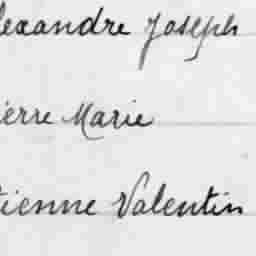 lexandre Joseph
ierre Marie
tienne Valentin